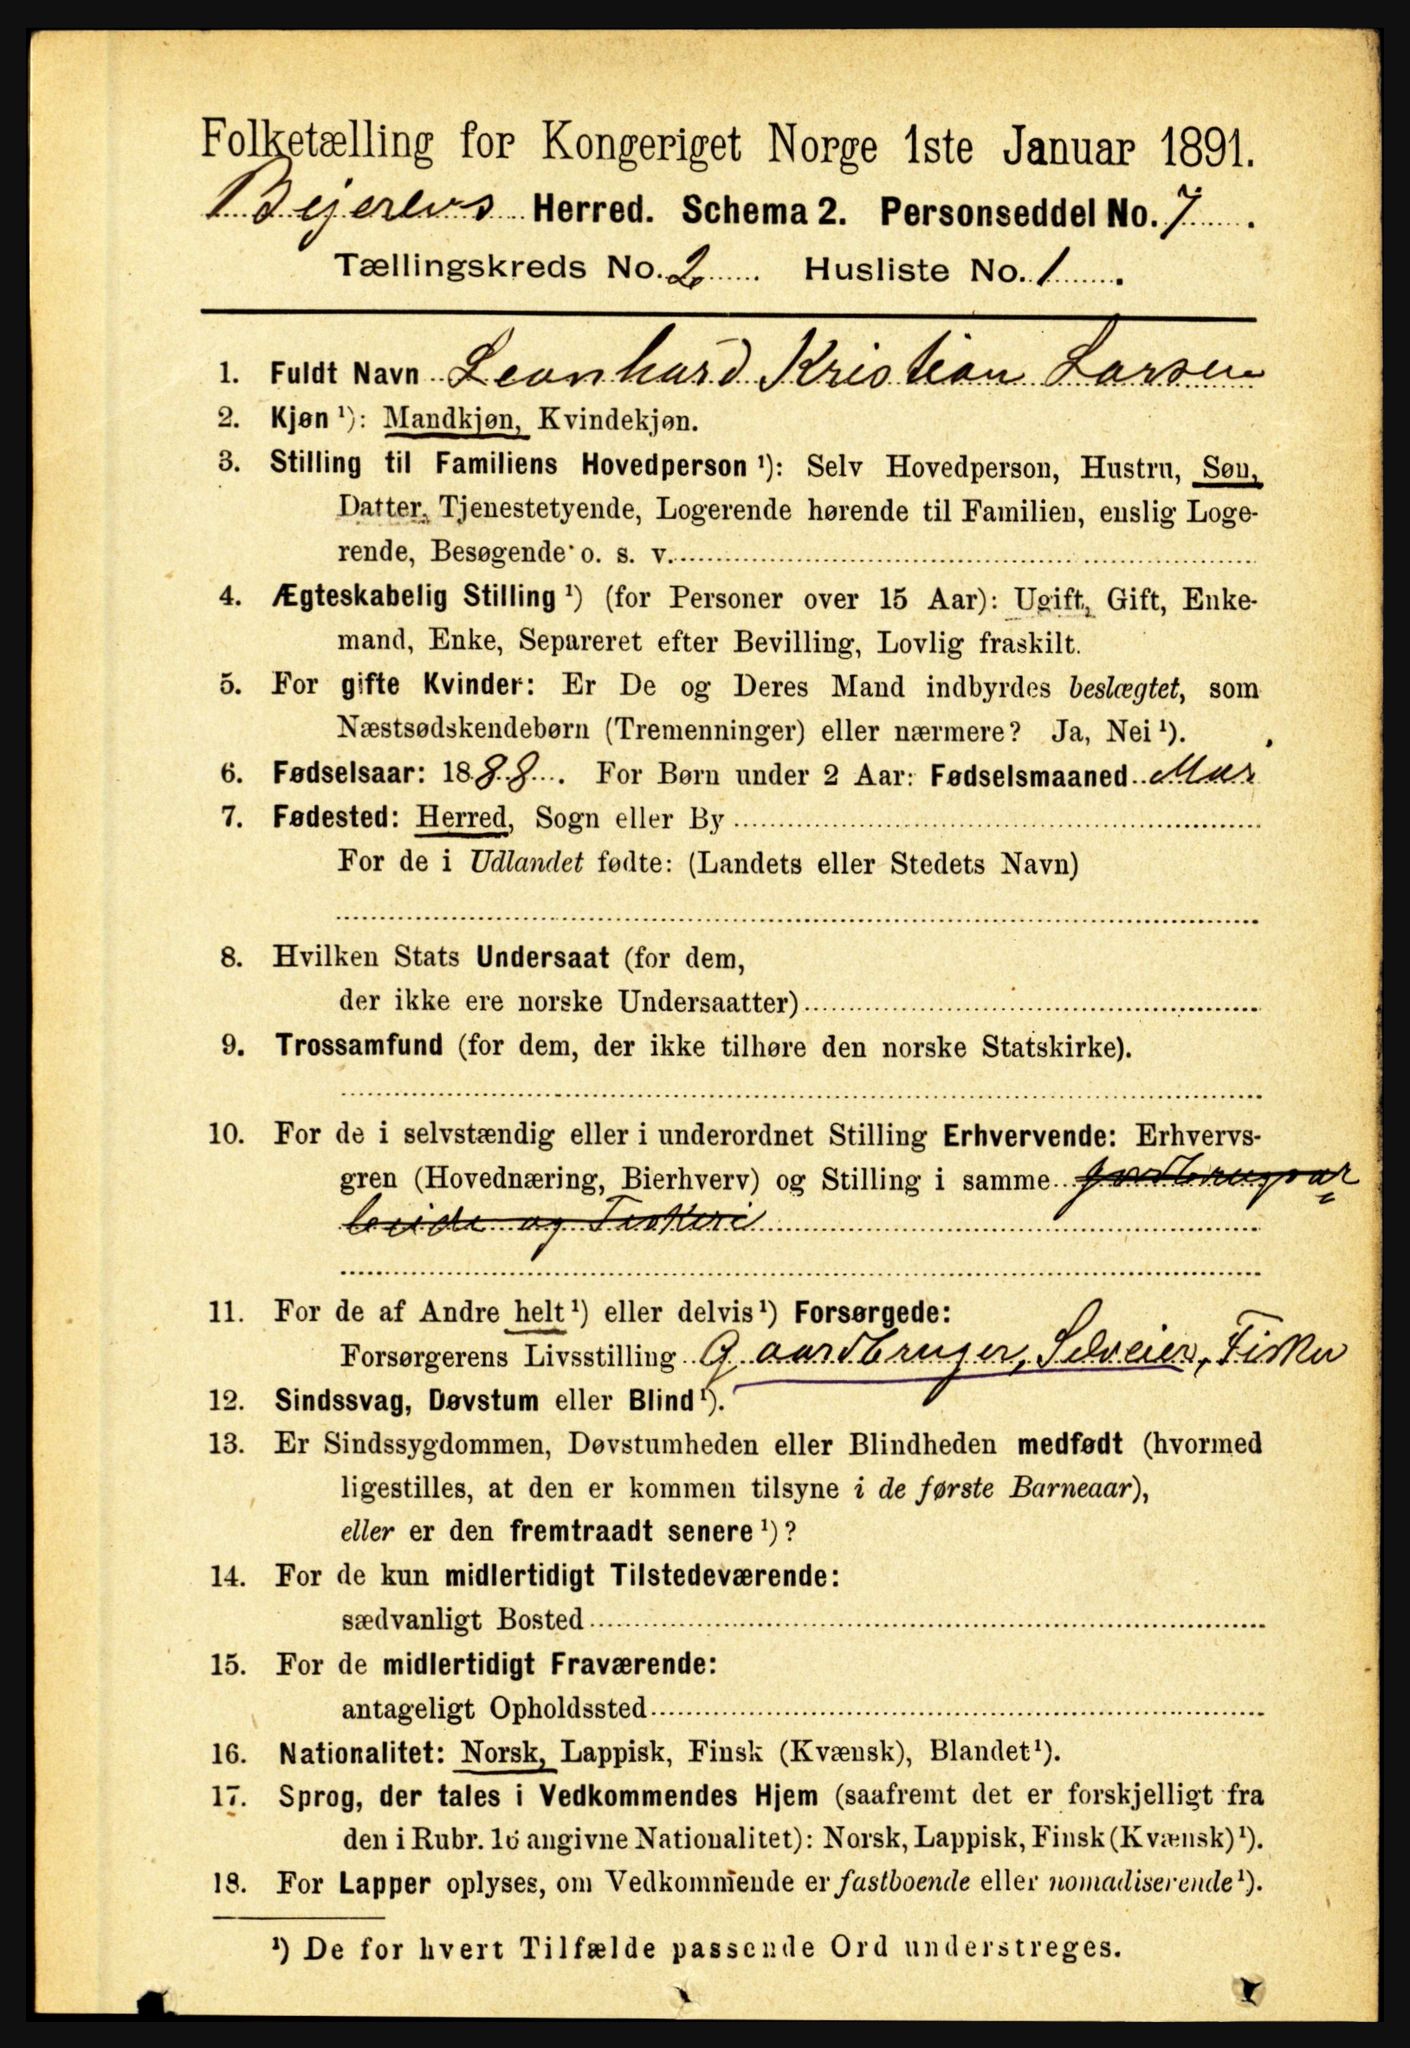 Folketælling for Kongeriget Norge 1ste Januar 1891.
Bejerens Herred. Schema 2. Personseddel No. 7.
Tællingskreds No. 2 Husliste No. 1.
1. Fuldt Navn Leonhard Kristian Larsen
2. Kjøn ¹): Mandkjøn, Kvindekjøn.
3. Stilling til Familiens Hovedperson ¹): Selv Hovedperson, Hustru, Søn,
Datter, Tjenestetyende, Logerende hørende til Familien, enslig Loge-
rende, Besøgende o. s. v.
4. Ægteskabelig Stilling ¹) (for Personer over 15 Aar): Ugift, Gift, Enke-
mand, Enke, Separeret efter Bevilling, Lovlig fraskilt.
5. For gifte Kvinder: Er De og Deres Mand indbyrdes beslægtet, som
Næstsødskendebørn (Tremenninger) eller nærmere? Ja, Nei ¹).
6. Fødselsaar: 1888. For Børn under 2 Aar: Fødselsmaaned Mar
7. Fødested: Herred, Sogn eller By
For de i Udlandet fødte: (Landets eller Stedets Navn)
8. Hvilken Stats Undersaat (for dem,
der ikke ere norske Undersaatter)
9. Trossamfund (for dem, der ikke tilhøre den norske Statskirke).
10. For de i selvstændig eller i underordnet Stilling Erhvervende: Erhvervs-
gren (Hovednæring, Bierhverv) og Stilling i samme Jordbrugsar
beide og Fiskeri
11. For de af Andre helt ¹) eller delvis ¹) Forsørgede:
Forsørgerens Livsstilling Gaardbruger, Selveier, Fisker
12. Sindssvag, Døvstum eller Blind ¹).
13. Er Sindssygdommen, Døvstumheden eller Blindheden medfødt (hvormed
ligestilles, at den er kommen tilsyne i de første Barneaar),
eller er den fremtraadt senere ¹)?
14. For de kun midlertidigt Tilstedeværende:
sædvanligt Bosted
15. For de midlertidigt Fraværende:
antageligt Opholdssted
16. Nationalitet: Norsk, Lappisk, Finsk (Kvænsk), Blandet ¹).
17. Sprog, der tales i Vedkommendes Hjem (saafremt det er forskjelligt fra
den i Rubr. 16 angivne Nationalitet): Norsk, Lappisk, Finsk (Kvænsk) ¹).
18. For Lapper oplyses, om Vedkommende er fastboende eller nomadiserende ¹).
¹) De for hvert Tilfælde passende Ord understreges.